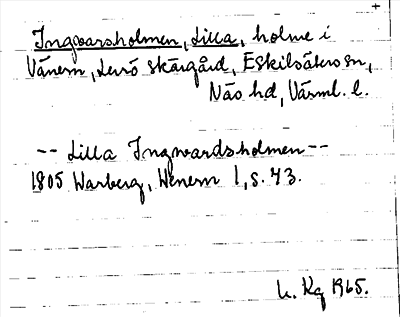 Ingvarsholmen, Lilla, holme i
Vänern, Lurö skärgård, Eskilsäters sn,
Näs hd, Värml. l.
-- Lilla Ingwardsholmen --
1805 Warberg, Wenern 1, s. 43.
K. Kg 1965.